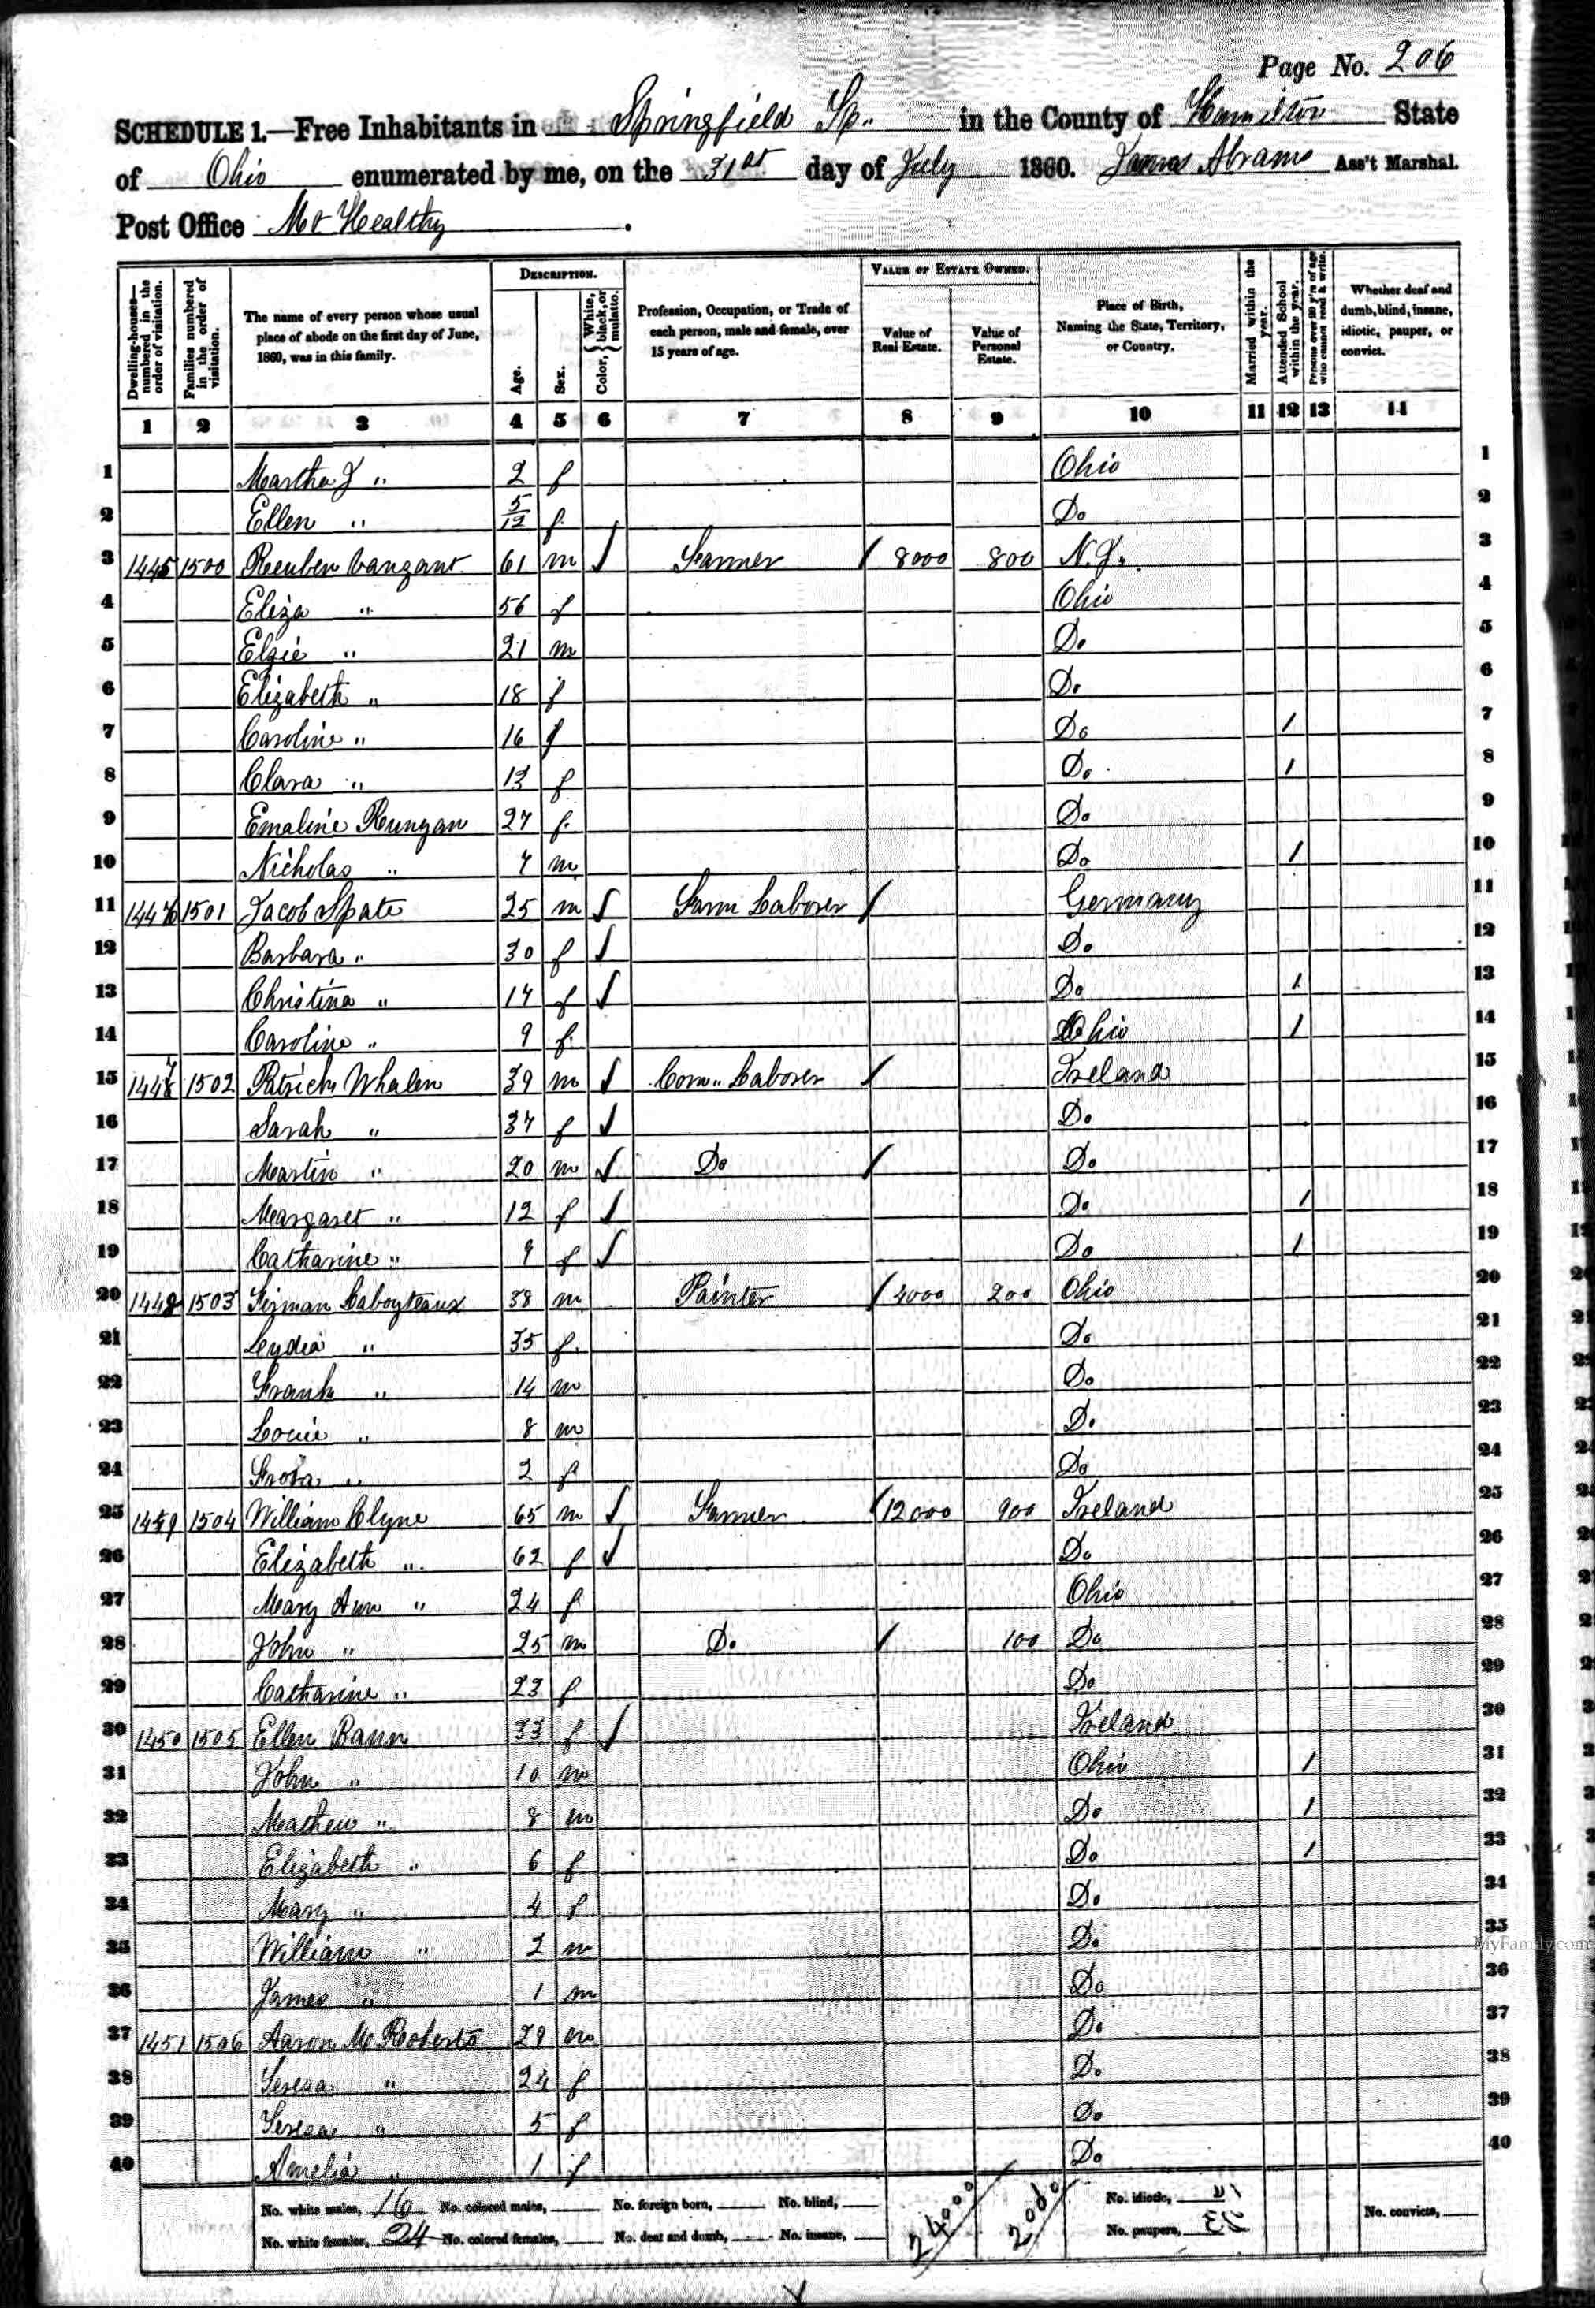 Page No. 206
SCHEDULE 1.—Free Inhabitants in Springfield Tp. in the County of Hamilton State
of Ohio enumerated by me, on the 31st day of July 1860. James Abrams Ass't Marshal.
Post Office Mt Healthy.
Dwelling-houses—numbered in the order of visitation.
Families numbered in the order of visitation.
The name of every person whose usual place of abode on the first day of June, 1860, was in this family.
DESCRIPTION.
Age.
Sex.
Color, { White, black, or mulatto.
Profession, Occupation, or Trade of each person, male and female, over 15 years of age.
VALUE OF ESTATE OWNED.
Value of Real Estate.
Value of Personal Estate.
Place of Birth, Naming the State, Territory, or Country.
Married within the year.
Attended School within the year.
Persons over 20 y'rs of age who cannot read & write.
Whether deaf and dumb, blind, insane, idiotic, pauper, or convict.
1 2 3 4 5 6 7 8 9 10 11 12 13 14
1 Martha J " 2 f Ohio 1
2 Ellen " 5/12 f. Do 2
3 1445 1500 Reuben Vanzant 61 m / Farmer / 8000 800 N.J. 3
4 Eliza " 56 f Ohio 4
5 Elzie " 21 m Do 5
6 Elizabeth " 18 f Do 6
7 Caroline " 16 f Do / 7
8 Clara " 13 f Do / 8
9 Emaline Runyan 27 f. Do 9
10 Nicholas " 7 m Do / 10
11 1446 1501 Jacob Spate 25 m / Farm Laborer / Germany 11
12 Barbara " 30 f / Do 12
13 Christina " 14 f / Do / 13
14 Caroline " 9 f. Ohio / 14
15 1447 1502 Patrick Whalen 39 m / Com" Laborer / Ireland 15
16 Sarah " 37 f / Do 16
17 Martin " 20 m / Do / Do 17
18 Margaret " 12 f / Do / 18
19 Catharine " 9 f / Do / 19
20 1448 1503 Laboyteaux 38 m Painter / 4000 200 Ohio 20
21 Lydia " 35 f. Do 21
22 Frank " 14 m Do 22
23 Louie " 8 m Do 23
24 " 2 f Do 24
25 1449 1504 William Clyne 65 m / Farmer / 12000 900 Ireland 25
26 Elizabeth " 62 f / Do 26
27 Mary Ann " 24 f Ohio 27
28 John " 25 m Do / 100 Do 28
29 Catharine " 23 f Do 29
30 1450 1505 Ellen Bann 33 f / Ireland 30
31 John " 10 m Ohio / 31
32 Mathew " 8 m Do / 32
33 Elizabeth " 6 f Do / 33
34 Mary " 4 f Do 34
35 William " 2 m Do 35
36 James " 1 m Do 36
37 1451 1506 Aaron Mc Roberts 29 m Do 37
38 Teresa " 24 f Do 38
39 Teresa " 5 f Do 39
40 Amelia " 1 f Do 40
No. white males, 16 No. colored males, No. foreign born, No. blind, 24000 2000 No. idiotic, No. convicts,
No. white females, 24 No. colored females, No. deaf and dumb, No. insane, No. paupers,
MyFamily.com